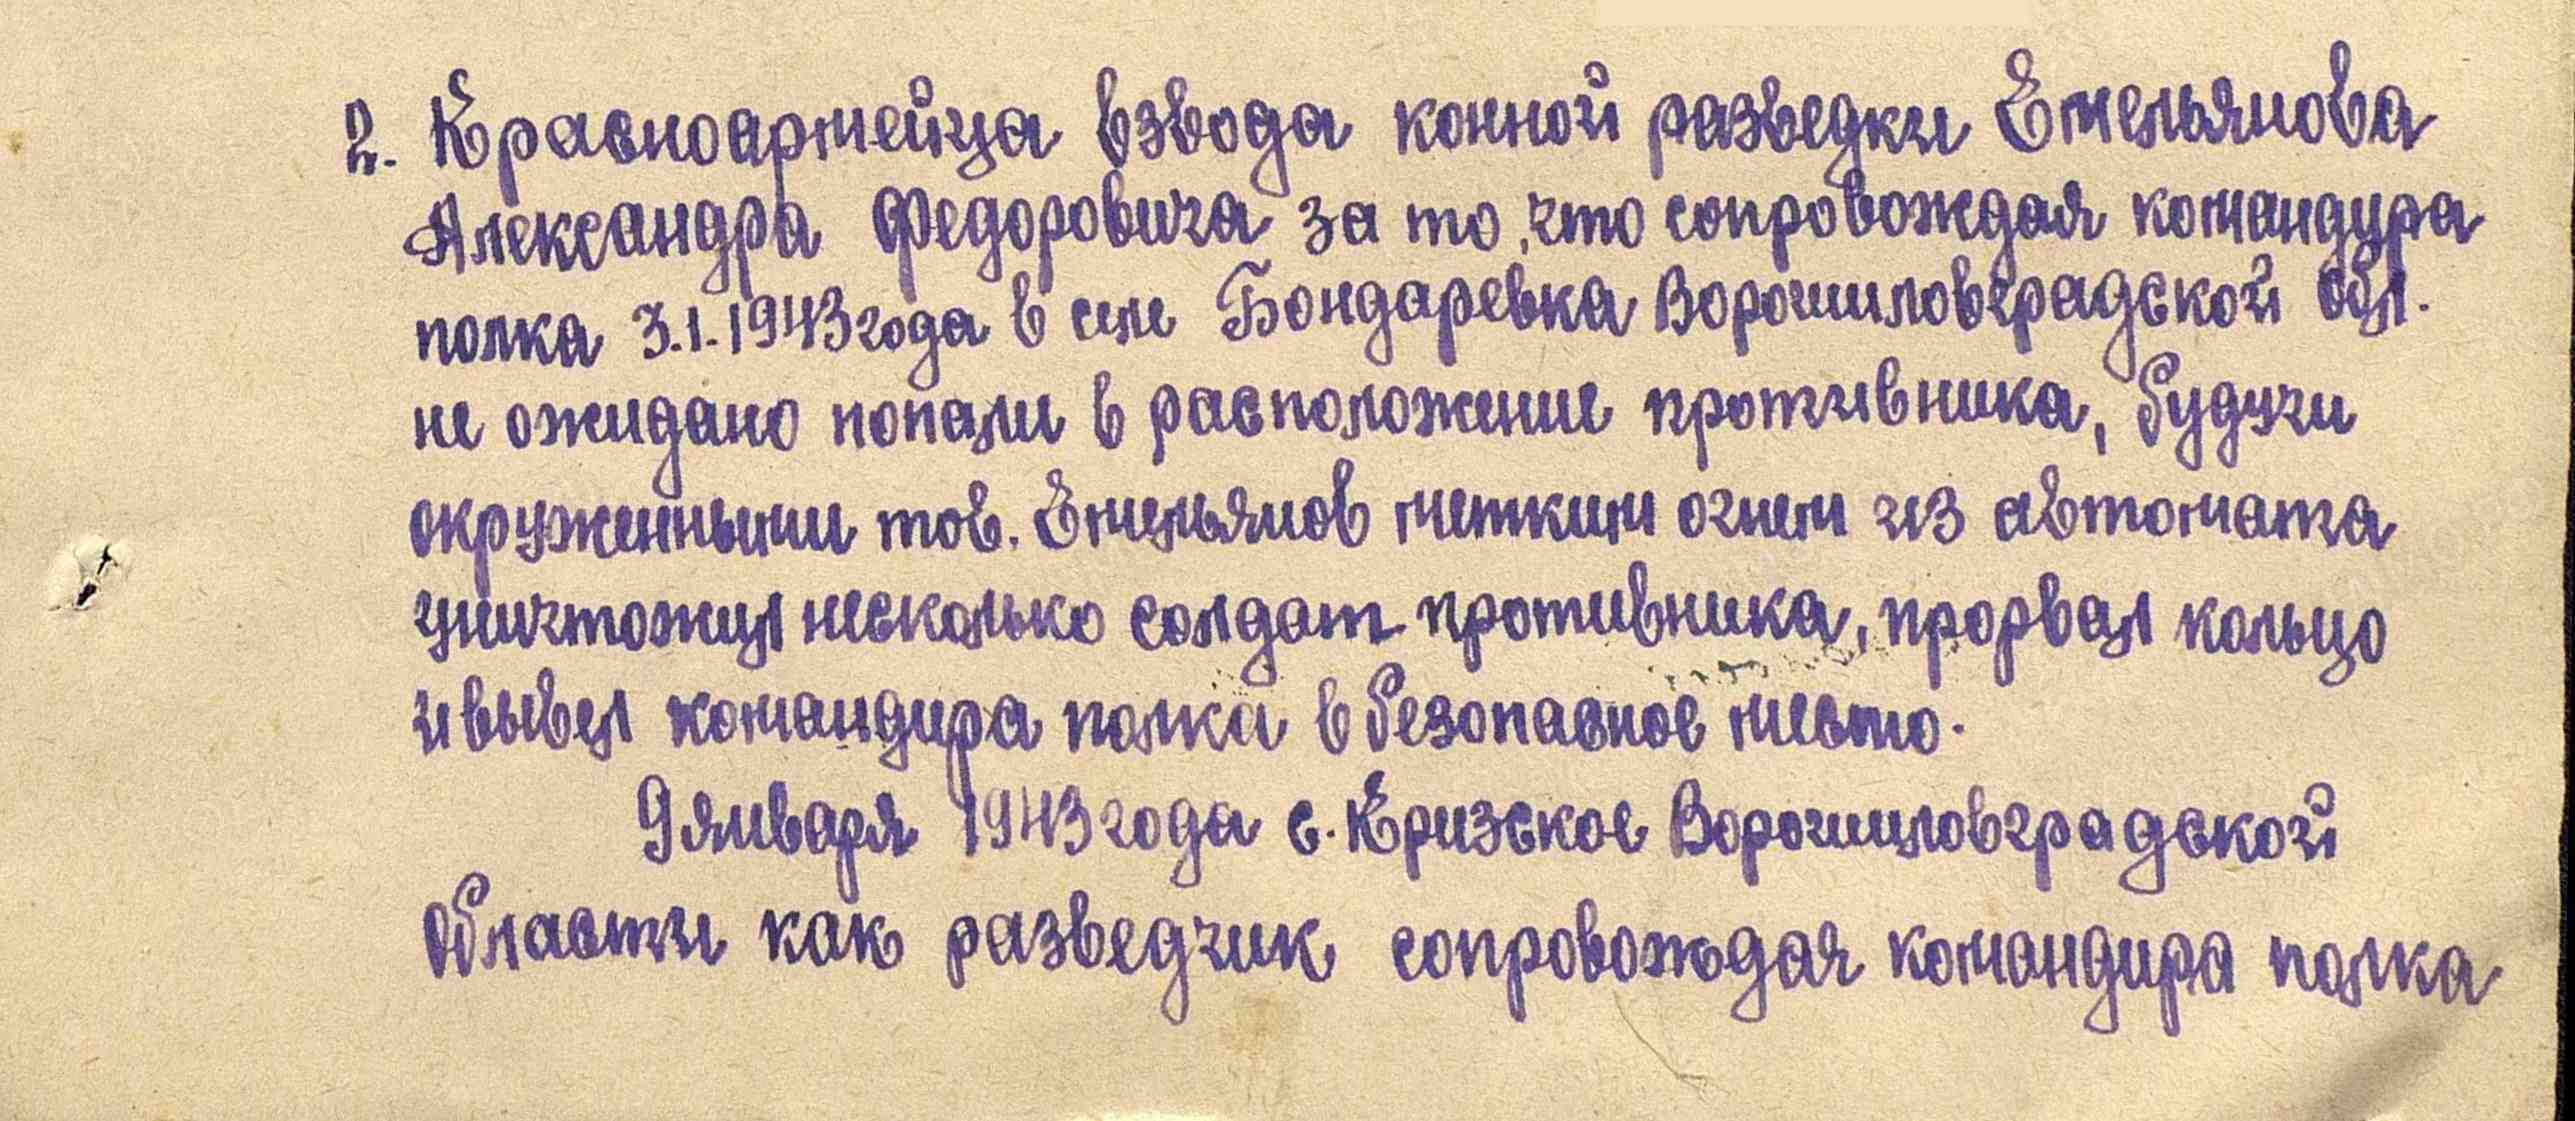 2. Красноармейца взвода конной разведки Емельянова
Александра Федоровича за то, что сопровождая командира
полка 3.1.1943 года в селе Бондаревка Ворошиловградской обл.
не ожидано попали в расположение противника, будучи
окруженными тов. Емельянов метким огнем из автомата
уничтожил несколько солдат противника, прорвал кольцо
и вывел командира полка в безопасное место.
9 января 1943 года с. Кризское Ворошиловградской
области как разведчик сопровождая командира полка